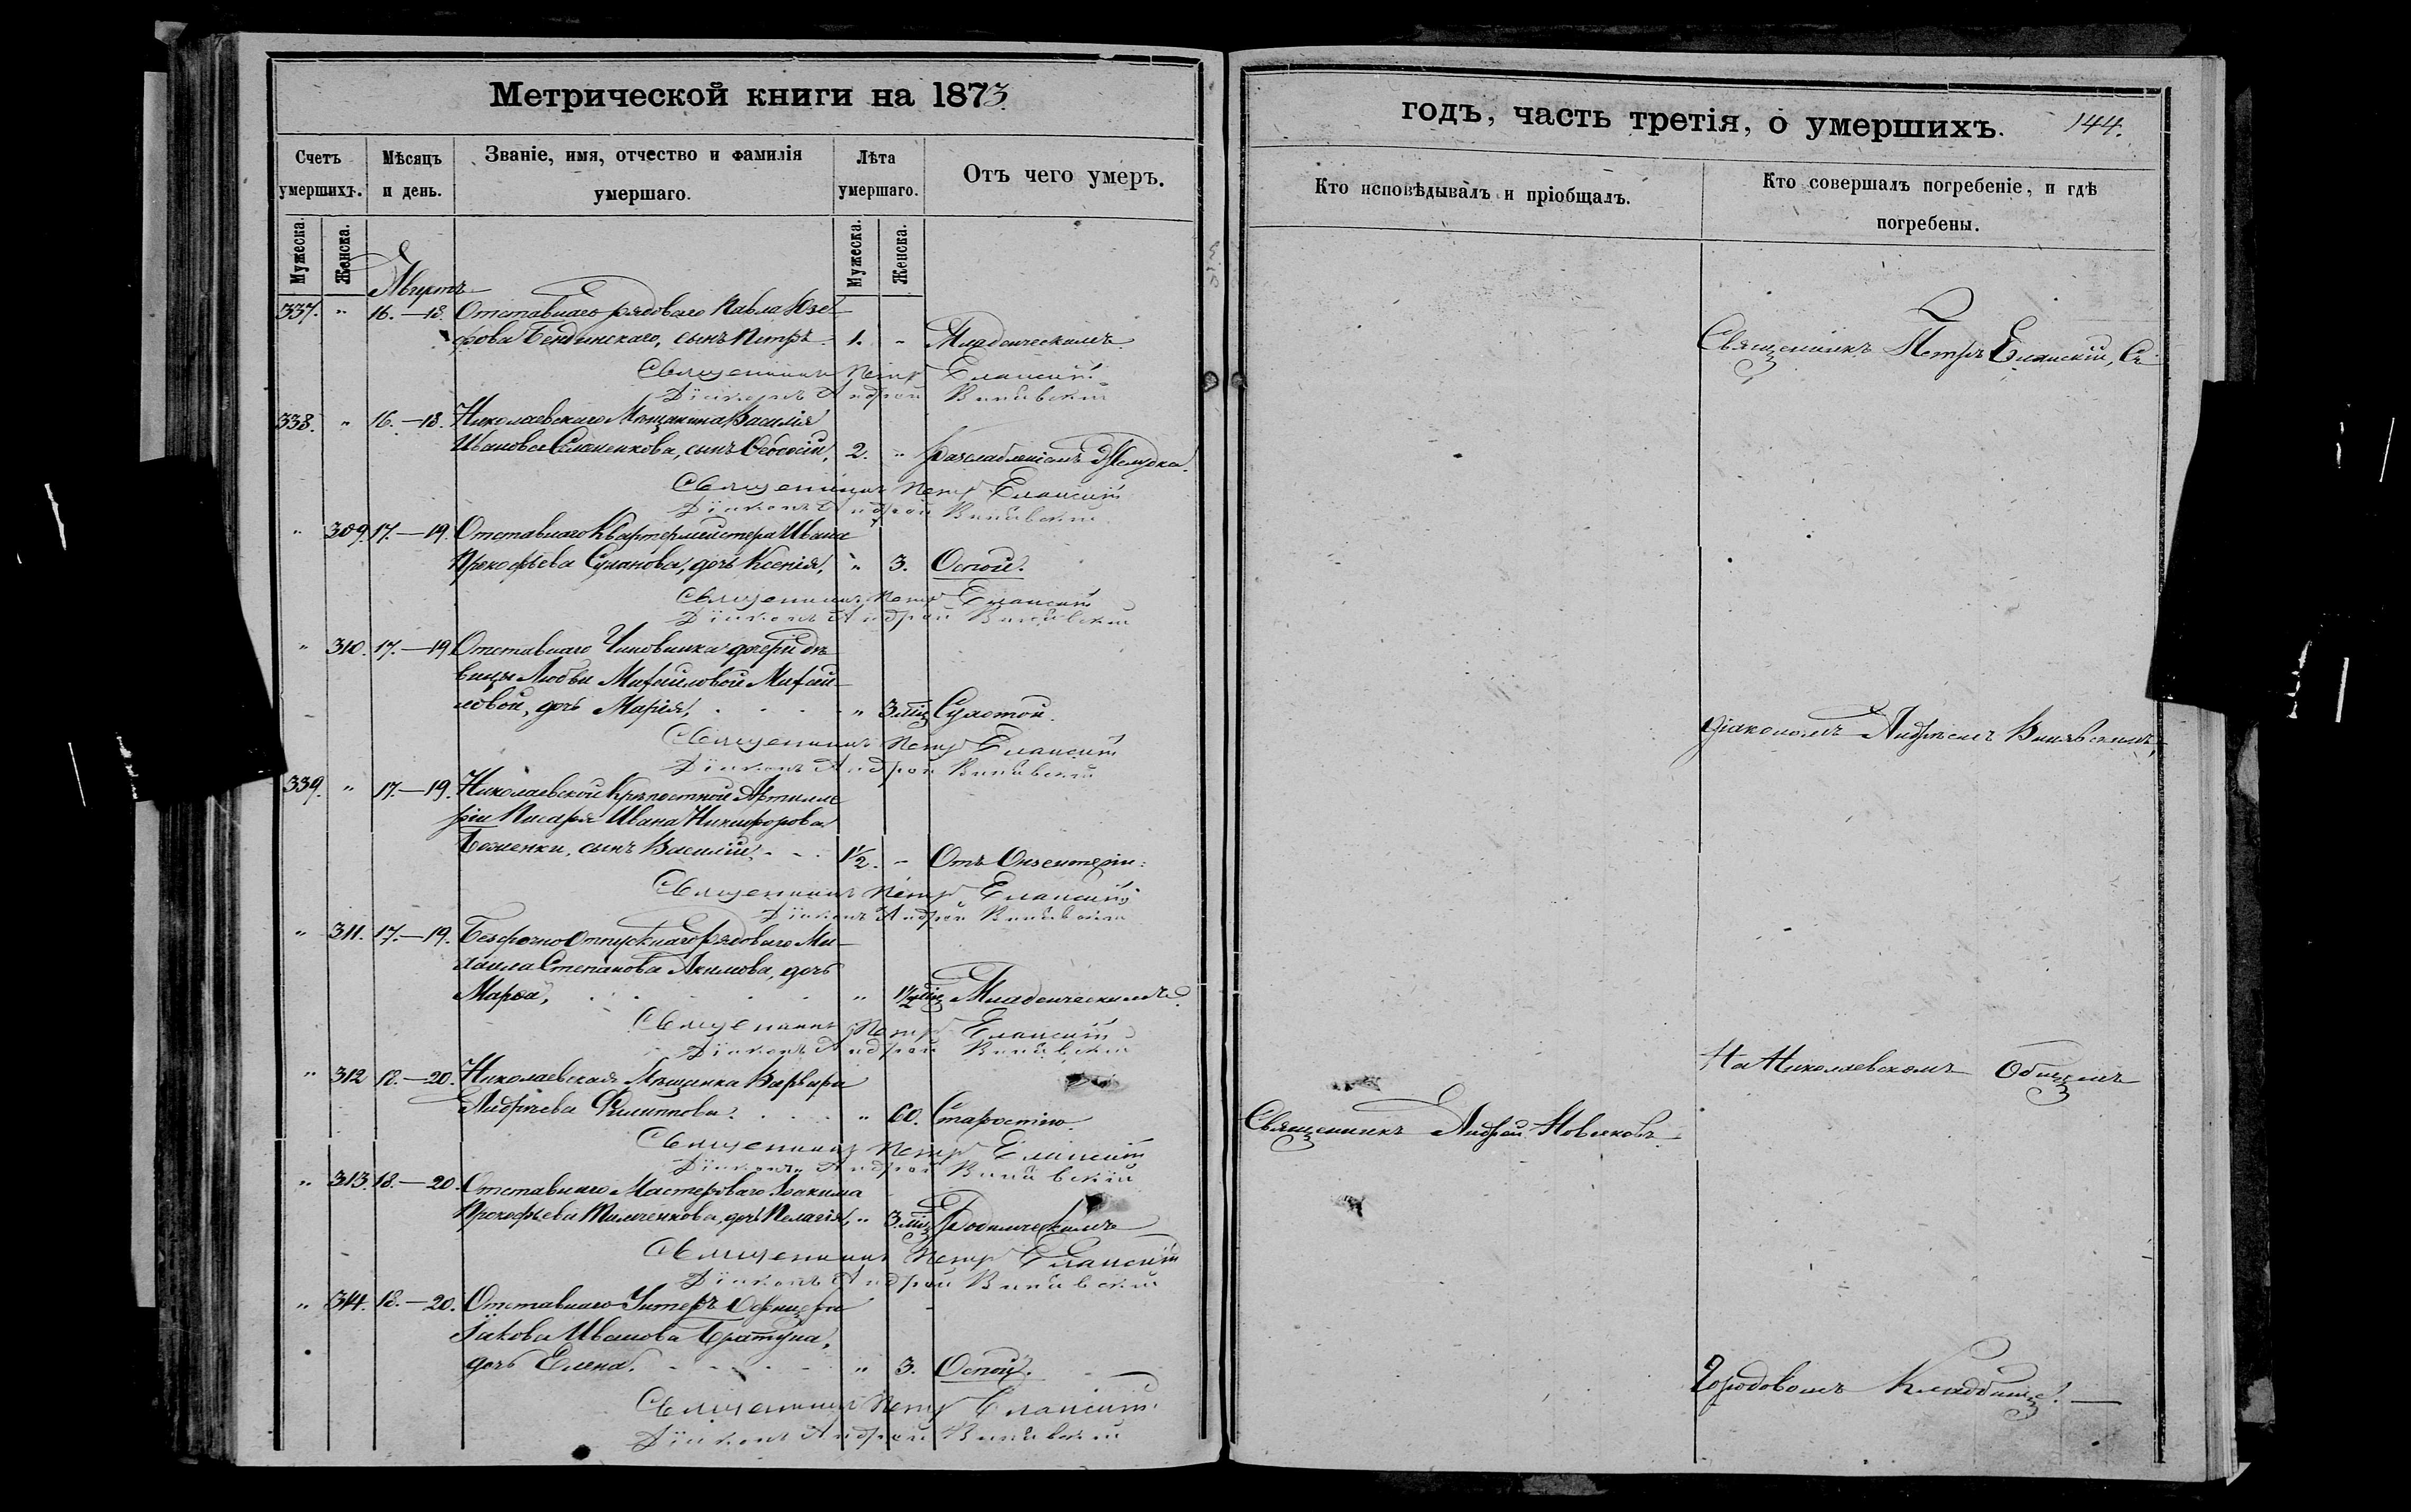 Метрической книги на 1873
Счетъ умершихъ.
Мѣсяцъ и день.
Званіе, имя, отчество и фамилія умершаго.
Лѣта умершаго.
Отъ чего умеръ.
Мужеска.
Женска.
Мужеска.
Женска.
Августъ
337. " 16.—18. Отставнаго рядоваго Павла Юзе-
фова Бендинскаго, сынъ Петръ. 1. " Младенческимъ
Священникъ Петръ Еланскій
Діаконъ Андрей
338. " 16.—18. Николаевскаго Мѣщанина Василія
Иванова сынъ Ѳеодосій, 2. " разслабленіемъ желудка.
Священникъ Петръ Еланскій
Діаконъ Андрей
" 309. 17.—19. Отставнаго Квартермейстера Ивана
Прокофьева Суханова, дочь Ксенія, " 3. Оспой.
Священникъ Петръ Еланскій
Діаконъ Андрей
" 310. 17.—19 Отставнаго Чиновника дочери дѣ-
вицы Любви Михайловой Михай-
ловой, дочь Марія, " 3 мѣц Сухотой.
Священникъ Петръ Еланскій
Діаконъ Андрей
339. " 17.—19. Николаевской Крѣпостной Артилле
ріи Писаря Ивана Никифорова
сынъ Василій. 1/2. " Отъ
Священникъ Петръ Еланскій
Діаконъ Андрей
" 311. 17.—19. Безсрочно Отпускнаго рядоваго Ми-
хаила Степанова Акимова, дочь
Марѳа, " 1½ мѣц Младенческимъ.
Священникъ Петръ Еланскій
Діаконъ Андрей
" 312 18.—20. Николаевская Мѣщанка Варвара
Андреева Филиппова. " 60. Старостію
Священникъ Петръ Еланскій
Діаконъ Андрей
" 313. 18.—20 Отставнаго Мастероваго Іоакима
Прокофьева дочь Пелагія, " 3 мѣц Родимческимъ
Священникъ Петръ Еланскій
Діаконъ Андрей
" 314. 18.—20. Отставнаго Унтеръ Офицера
Іакова Иванова Братуна,
дочь Елена. " 3. Оспой.
Священникъ Петръ Еланскій
Діаконъ Андрей
годъ, часть третія, о умершихъ.
144.
Кто исповѣдывалъ и пріобщалъ.
Кто совершалъ погребеніе, и гдѣ погребены.
Священникъ Петръ Еланскій, Съ
Діакономъ Андреемъ
На Николаевскомъ Общемъ
Священникъ Андрей Новаковъ
Городовомъ Кладбищѣ.